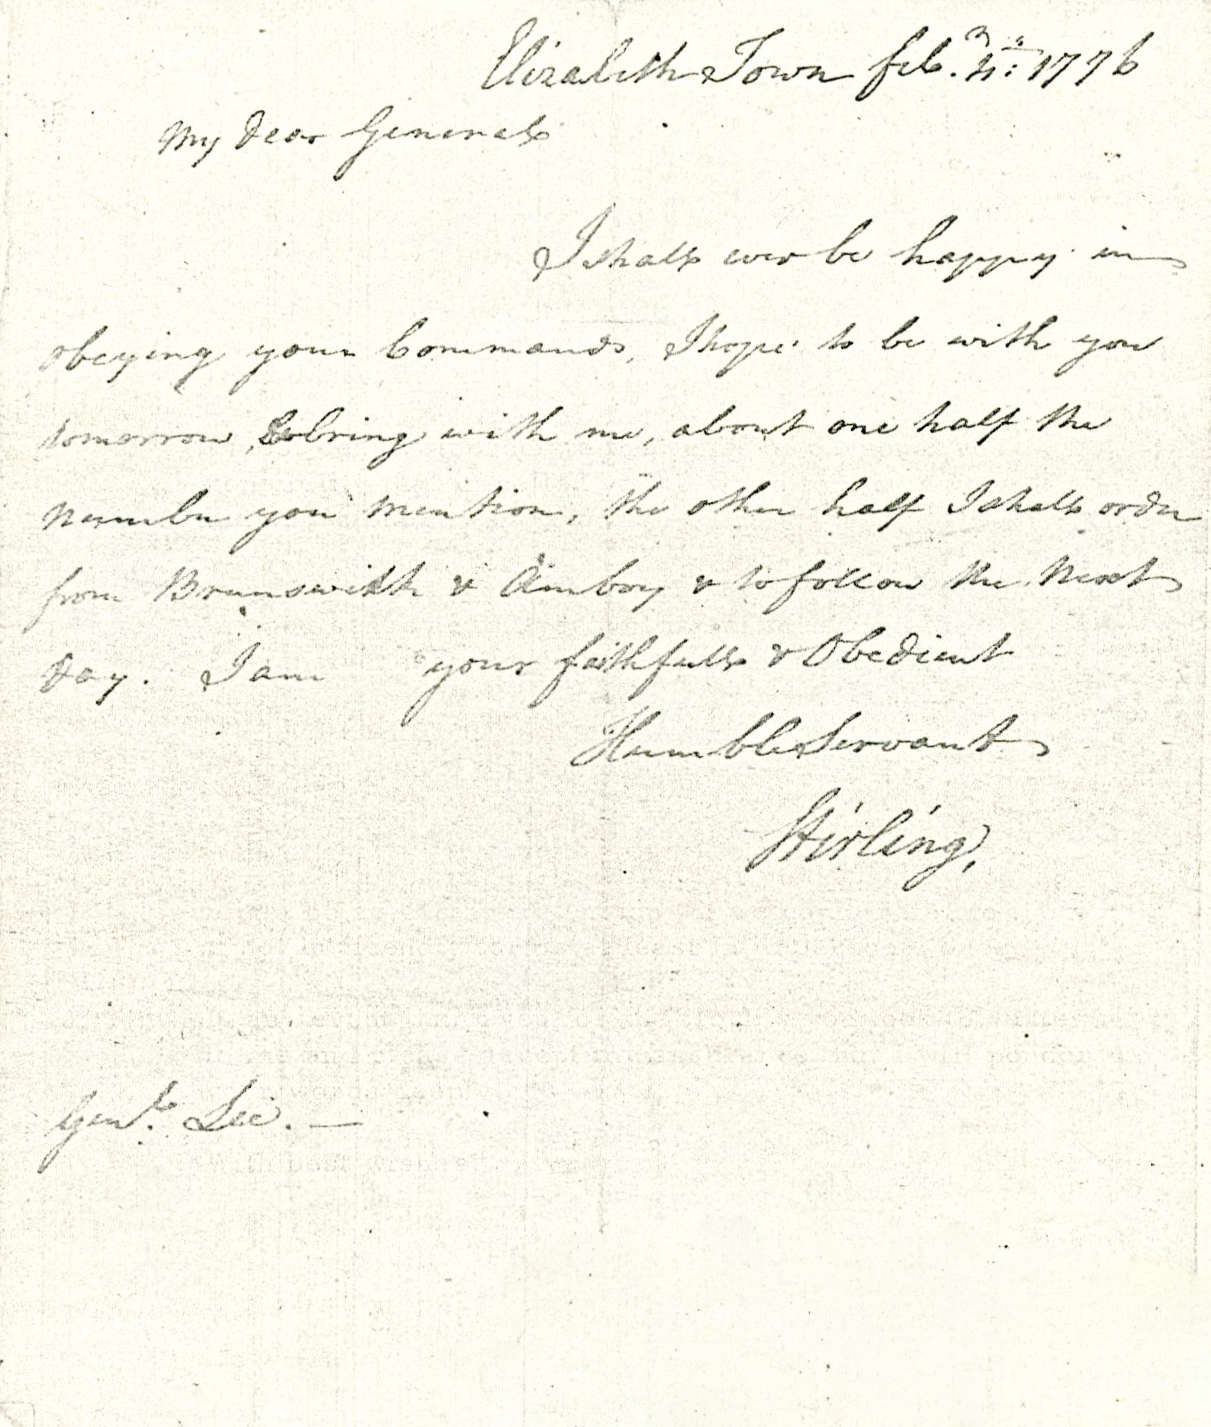 Elizabeth Town feb.ry 4: 1776
My Dear General
I shall ever be happy in
obeying your Commands, I hope to be with you
tomorrow, & bring with me, about one half the
number you mention, the other half I shall order
from Brunswick & Amboy & to follow the Next
Day. I am your faithfull & Obedient
Humble Servant
Stirling,
Genl. Lee. —